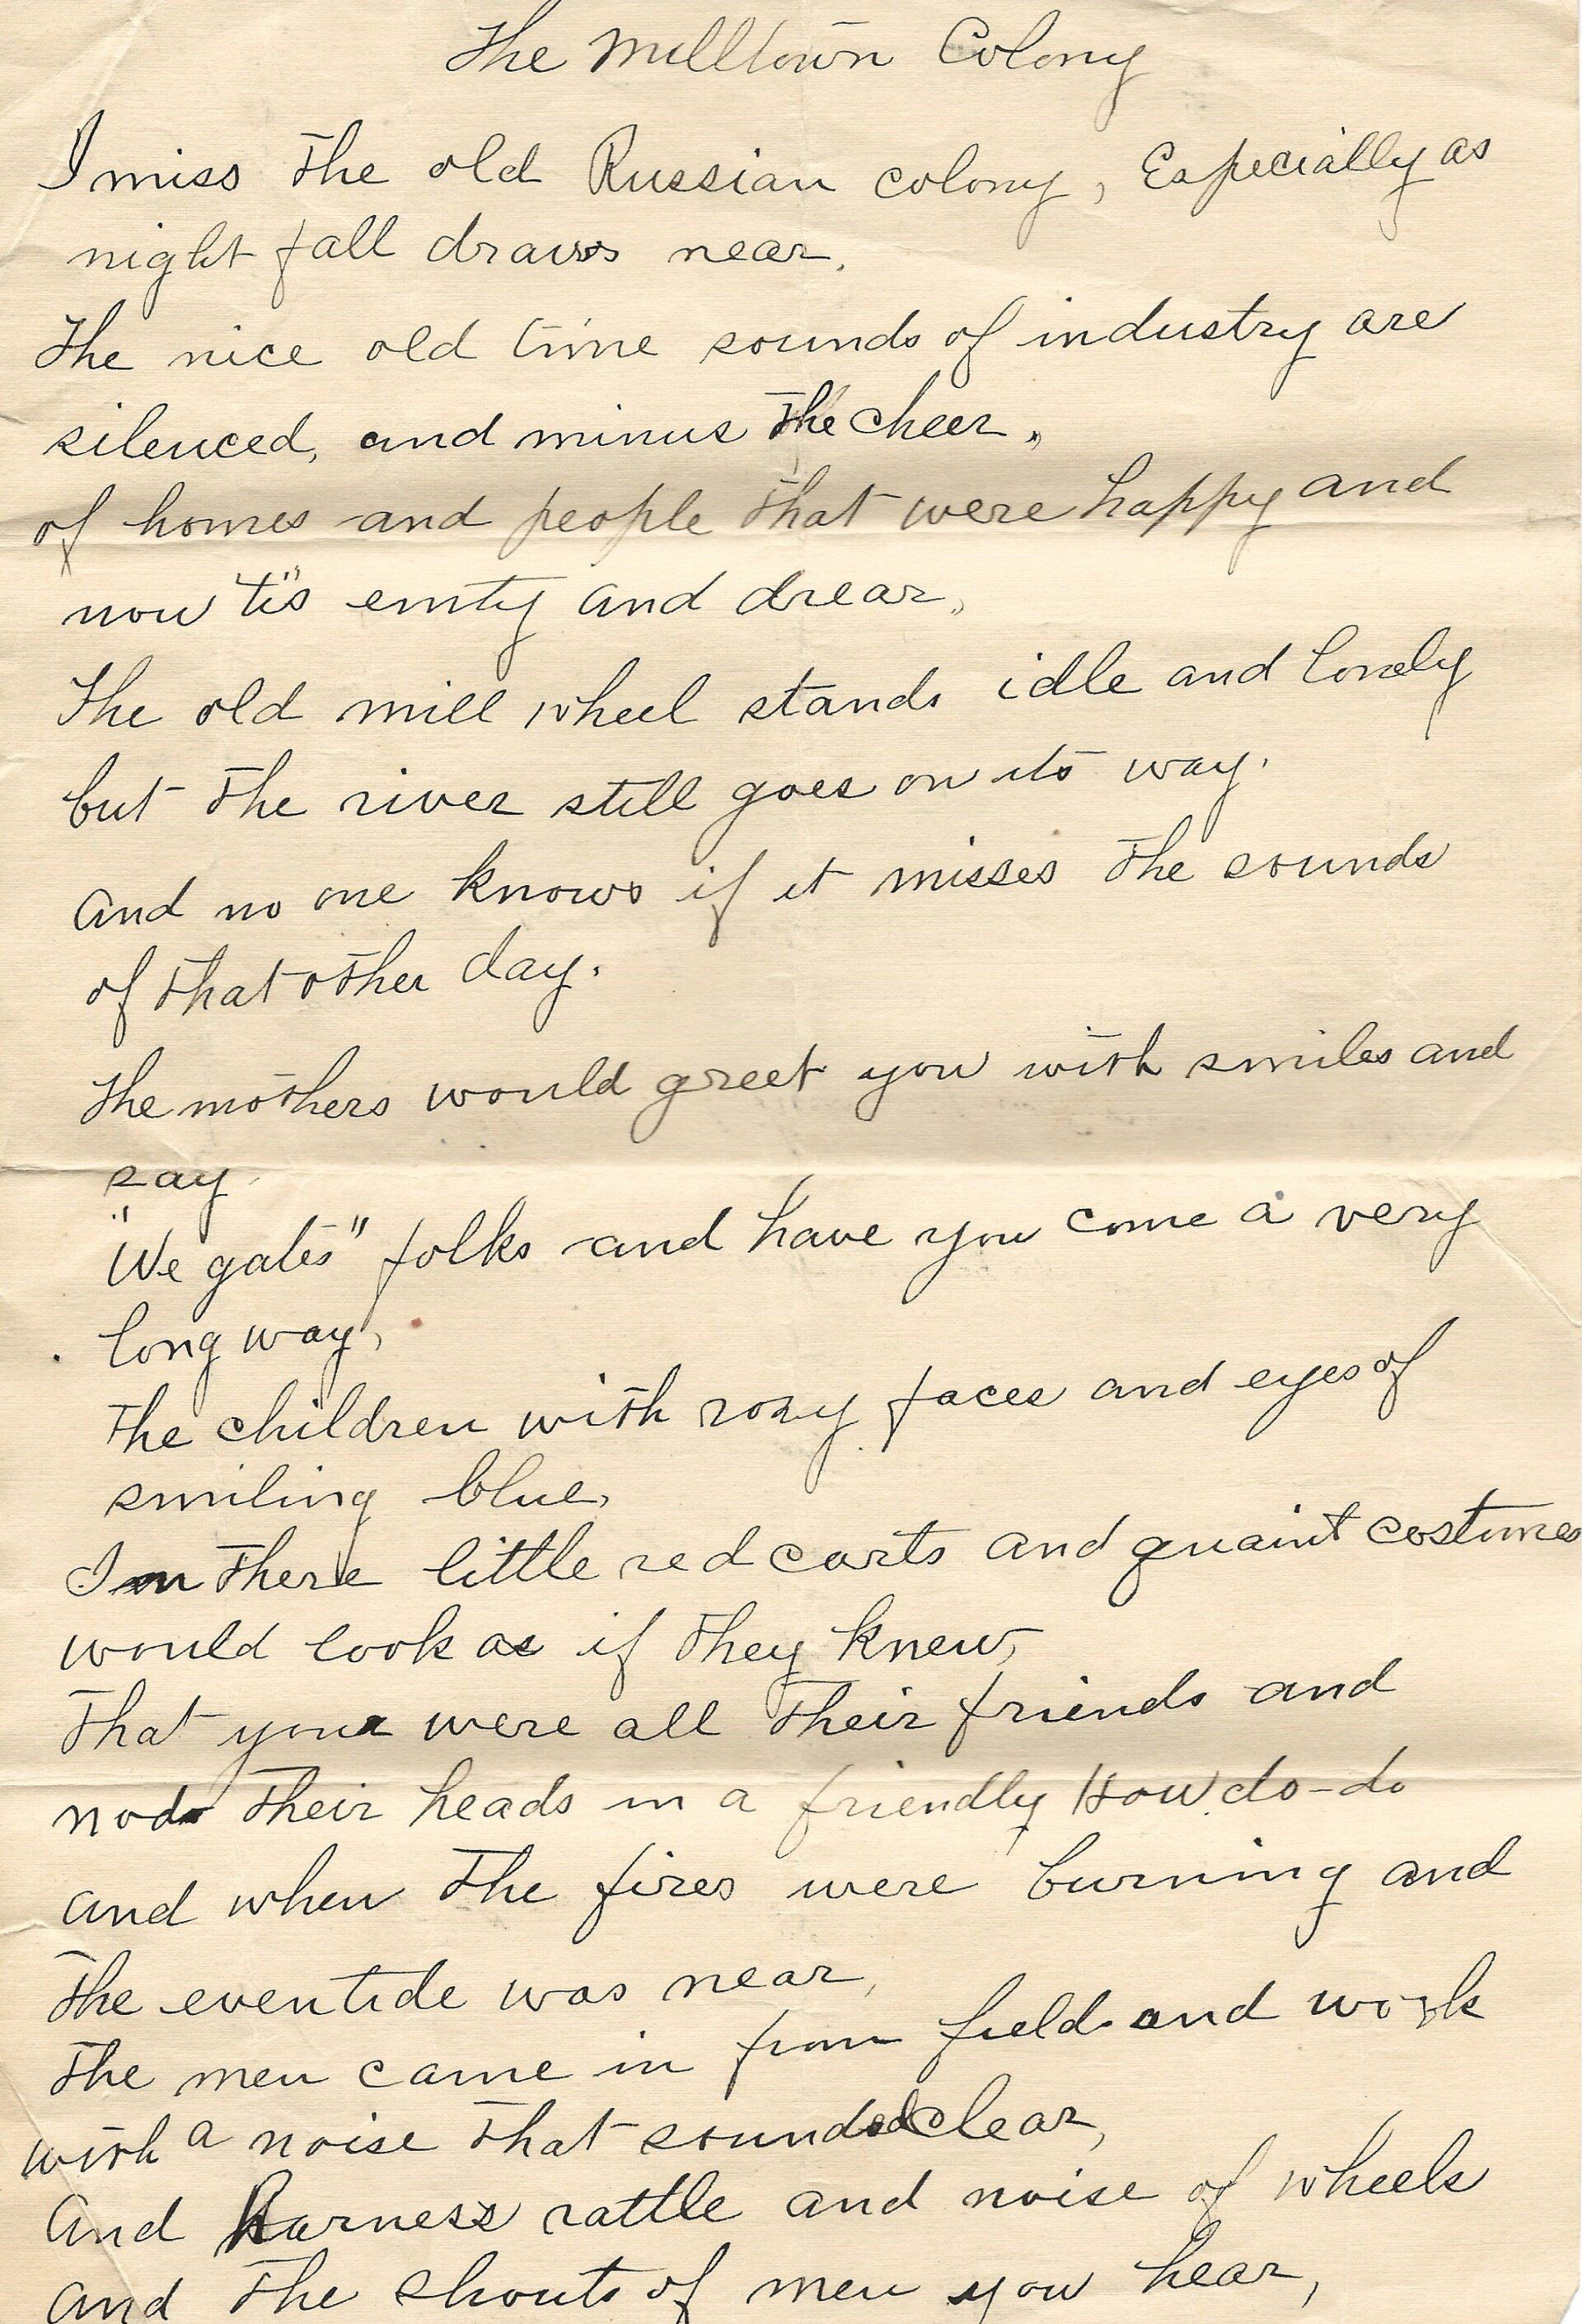 The Milltown Colony
I miss the old Russian colony, Especially as
night fall draws near.
The nice old time sounds of industry are
silenced, and minus the cheer.
of homes and people that were happy and
now 'ti"s emty and drear,
The old mill wheel stands idle and lonely
but the river still goes on its way.
and no one knows if it misses the sounds
of that other day.
The mothers would greet you with smiles and
say.
"We gates" folks and have you come a very
long way,
The children with rosy faces and eyes of
smiling blue,
In there little red carts and quaint costumes
would look as if they knew,
That you were all their friends and
nod their heads in a friendly How do-do
and when the fires were burning and
the eventide was near,
the men came in from field and work
with a noise that sounded clear,
And Harness rattle and noise of wheels
and the shouts of men you hear,